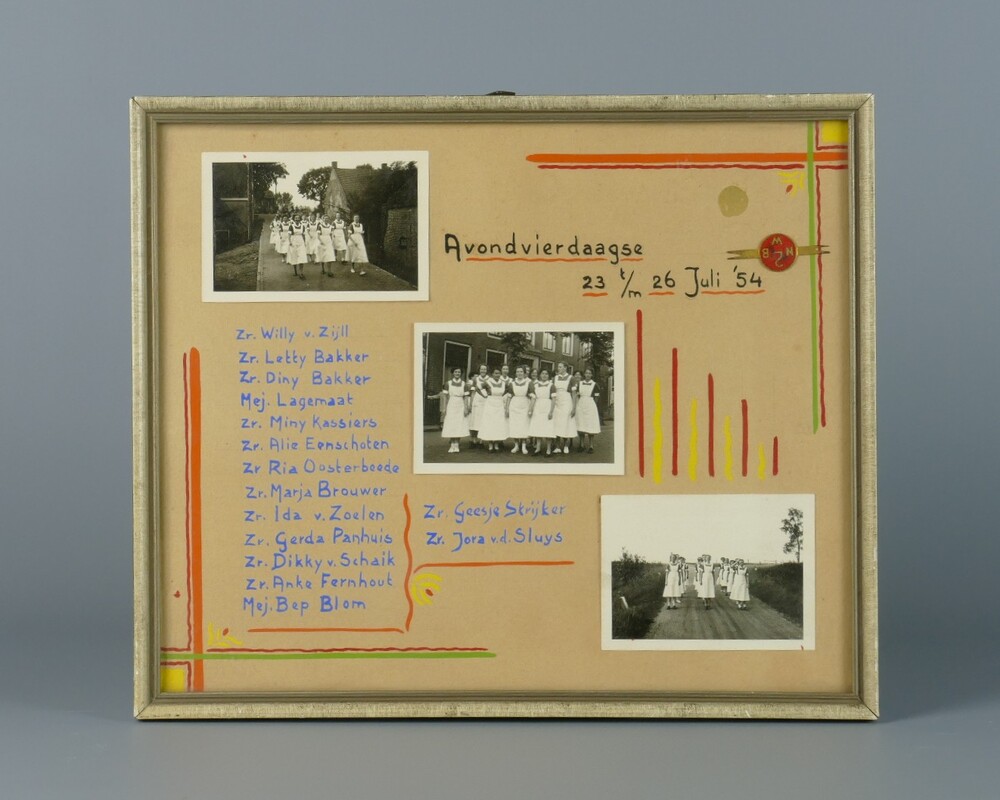 Avondvierdaagse
23 t/m 26 Juli '54
NWB
Zr. Willy v. Zijll
Zr. Letty Bakker
Zr. Diny Bakker
Mej. Lagemaat
Zr. Miny Kassiers
Zr. Alie Eenschoten
Zr Ria Oosterbeede
Zr. Marja Brouwer
Zr. Ida v. Zoelen
Zr. Gerda Panhuis
Zr. Dikky v. Schaik
Zr. Anke Fernhout
Mej. Bep Blom
Zr. Geesje Strijker
Zr. Jora v.d. Sluys